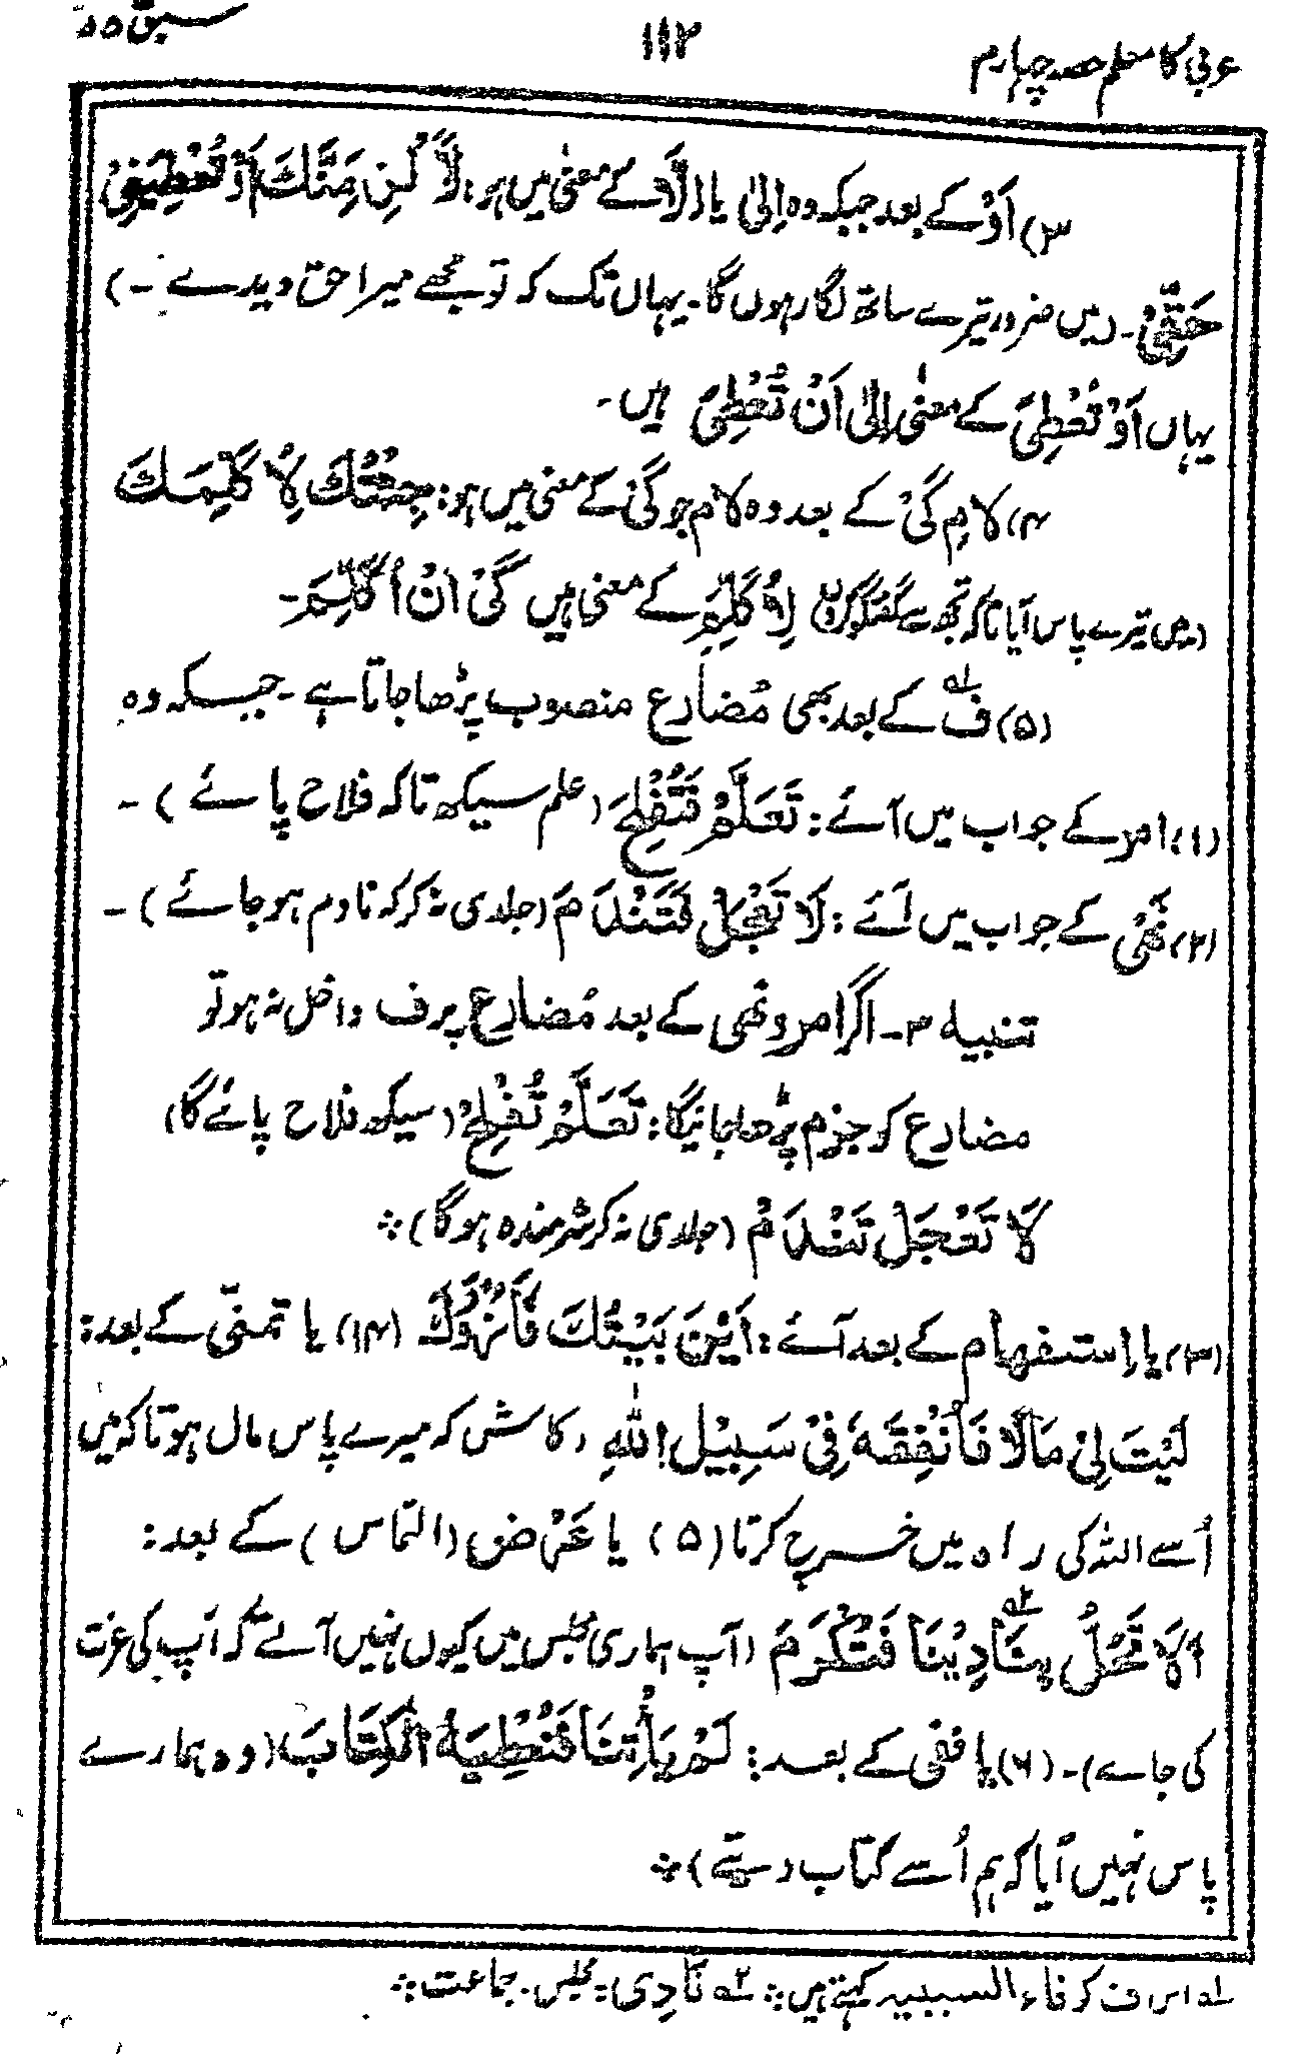 عربی کا معلم حصہ چہارم
۱۱۲
سبق ۵۵
(۳) اَوْ کے بعد جبکہ وہ اِلٰی یا اِلَّا کے معنٰی میں ہو: لَاَلْزَمَنَّكَ اَوْ تُعْطِیَنِیْ
حَقِّیْ۔ (میں ضرور تیرے ساتھ لگا رہوں گا۔ یہاں تک کہ تو مجھے میرا حق دیدے ۔)
یہاں اَوْ تُعْطِیَ کے معنٰی اِلٰی اَنْ تُعْطِیَ ہیں۔
(۴) لامِ کَیْ کے بعد وہ لام جو کَیْ کے معنٰی میں ہو: جِئْتُكَ لِاُ کَلِّمَكَ
(میں تیرے پاس آیا تاکہ تجھ سے گفتگو کروں) لِاُ کَلِّمَ کے معنٰی ہیں کَیْ اَنْ اُکَلِّمَ۔
(۵) فَ لہ کے بعد بھی مُضارع منصوب پڑھا جاتا ہے ۔ جبکہ وہ
(۱) امر کے جواب میں آئے : تَعَلَّمْ فَتُفْلِحَ (علم سیکھ تاکہ فلاح پائے) ۔
(۲) نَھْیْ کے جواب میں آئے : لَا تَعْجَلْ فَتَنْدَمَ (جلدی نہ کر کہ نادم ہوجائے) ۔
تنبیہ ۳۔ اگر امر و نھی کے بعد مُضارع پر ف داخل نہ ہو تو
مضارع کو جزم پڑھا جائیگا : تَعَلَّمْ تُفْلِحْ (سیکھ فلاح پائے گا)
لَا تَعْجَلْ تَنْدَمْ (جلدی نہ کر شرمندہ ہوگا) ؞
(۳) یا استفہام کے بعد آئے : اَیْنَ بَیْتُكَ فَاَزُوْرَكَ (۱۴) یا تمنّی کے بعد :
لَیْتَ لِیْ مَالًا فَاُنْفِقَهٗ فِیْ سَبِیْلِ اللّٰهِ (کاش کہ میرے پاس مال ہوتا کہ میں
اُسے اللہ کی راہ میں خرچ کرتا (۵) یا عَرْض (التماس) کے بعد :
اَلَا تَحُلُّ بِنَادِیْنَا ٢ہ فَتُکْرَمَ (آپ ہماری مجلس میں کیوں نہیں آتے کہ آپ کی عزت
کی جاے)۔ (۶) یا نفی کے بعد : لَمْ یَأْتِنَا فَنُعْطِیَهُ الْکِتَابَ (وہ ہمارے
پاس نہیں آیا کہ ہم اُسے کتاب دیتے) ؞
لہ اس ف کو فاء السببیہ کہتے ہیں ؞ ٢ہ نَادِی = مجلس ۔ جماعت ؞